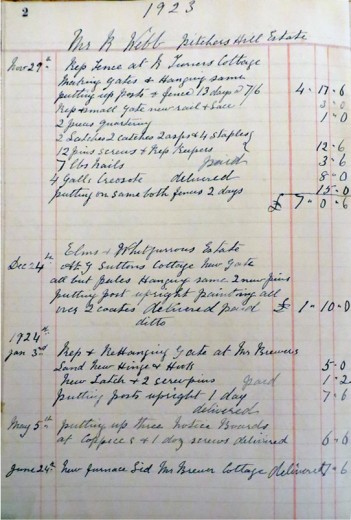 2
1923
Mr R Webb Pitchers Hill Estate
Nov 29th Rep Fence at R Turners Cottage
Making Gates & Hanging same
putting up posts & fence 13 days at 7/6 4-17-6
Rep small Gate new rail & 3-0
2 pieces quartering 1-0
2 Latches 2 catches 2 asps & 4 Staples
12 pins screws & Rep Keepers 12-6
7 lbs Nails paid 3-6
4 Galls Creosote delivered 8-0
putting on same both fences 2 days 15-0
£ 7-0-6
Elms & Estate
Dec 24th At G Suttons Cottage New Gate
all but pales Hanging same 2 new pins
putting post upright painting all
over 2 coates Delivered paid £ 1-10-0
ditto
1924
Jan 3rd Rep & ReHanging Gate at Mr Brewers
New Hinge & 5-0
New Latch & 2 screw pins paid 1-2
putting posts upright 1 day 7-6
delivered
May 5th putting up three Notice Boards
at Coppice & 1 doz screws delivered 6-6
June 24th New furnace Lid Mr Brewer Cottage delivered -6